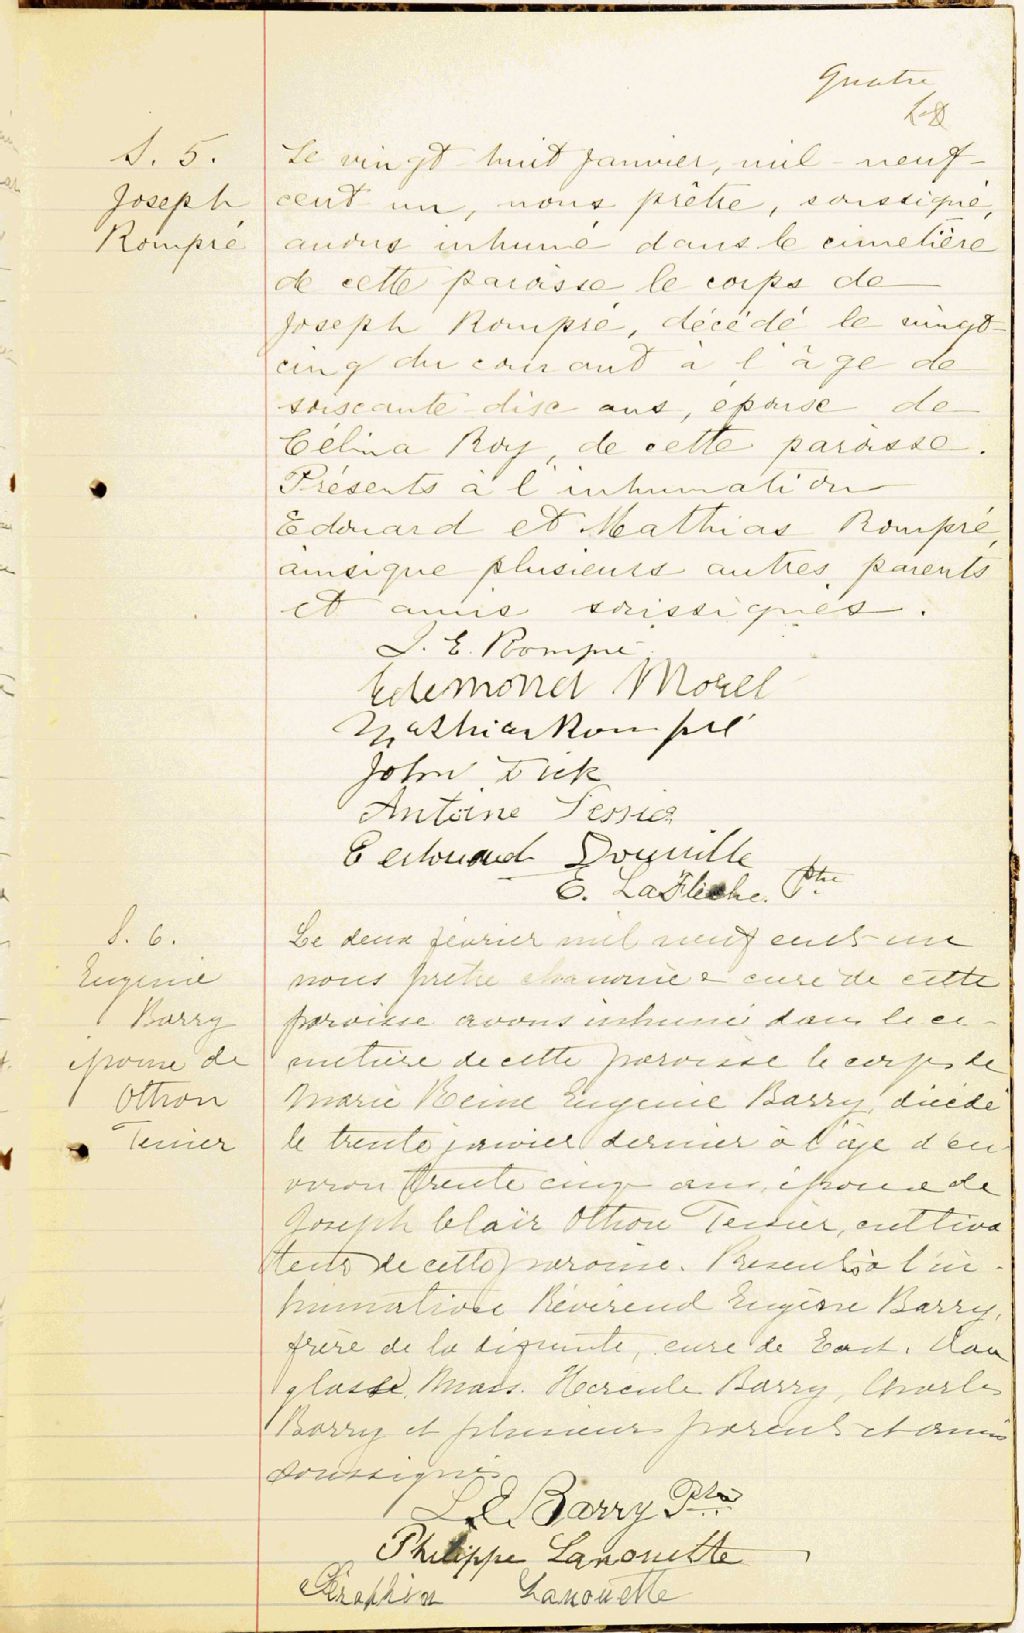 Quatre
S. 5.
Joseph
Rompré
Le vingt-huit Janvier, mil-neuf-
cent un, nous, prêtre, soussigné,
avons inhumé dans le cimetière
de cette paroisse le corps de
Joseph Rompré, décédé le vingt-
cinq du courant à l'âge de
soixante-dix ans, épouse de
Célina Roy, de cette paroisse.
Présents à l'inhumation
Edouard et Mathias Rompré,
ainsique plusieurs autres parents
et amis soussignés.
J. E. Rompré
Edemond Morel
Mathias Rompré
John Dick
Antoine Tessier
Edouard Douville
E. LaFleche. Ptre
S. 6.
Eugenie
Barry
épouse de
Othon
Tessier
Le deux février mil neuf cent un
nous pretre chanoine & curé de cette
paroisse avons inhumé dans le ci-
metiere de cette paroisse le corps de
Marie Reine Eugenie Barry, décédé
le trente janvier dernier à l'âge d'en-
viron trente cinq ans, épouse de
Joseph Claïr Othon Tessier, cultiva
teur de cette paroisse. Presents à l'in-
humation Révérend Eugène Barry,
frère de la defunte, curé de East. Dou
glasse, Mass. Hercule Barry, Charles
Barry et plusieurs parents et amis
soussignés
L. E. Barry Ptre
Philippe Lanouette
Séraphin Lanouette